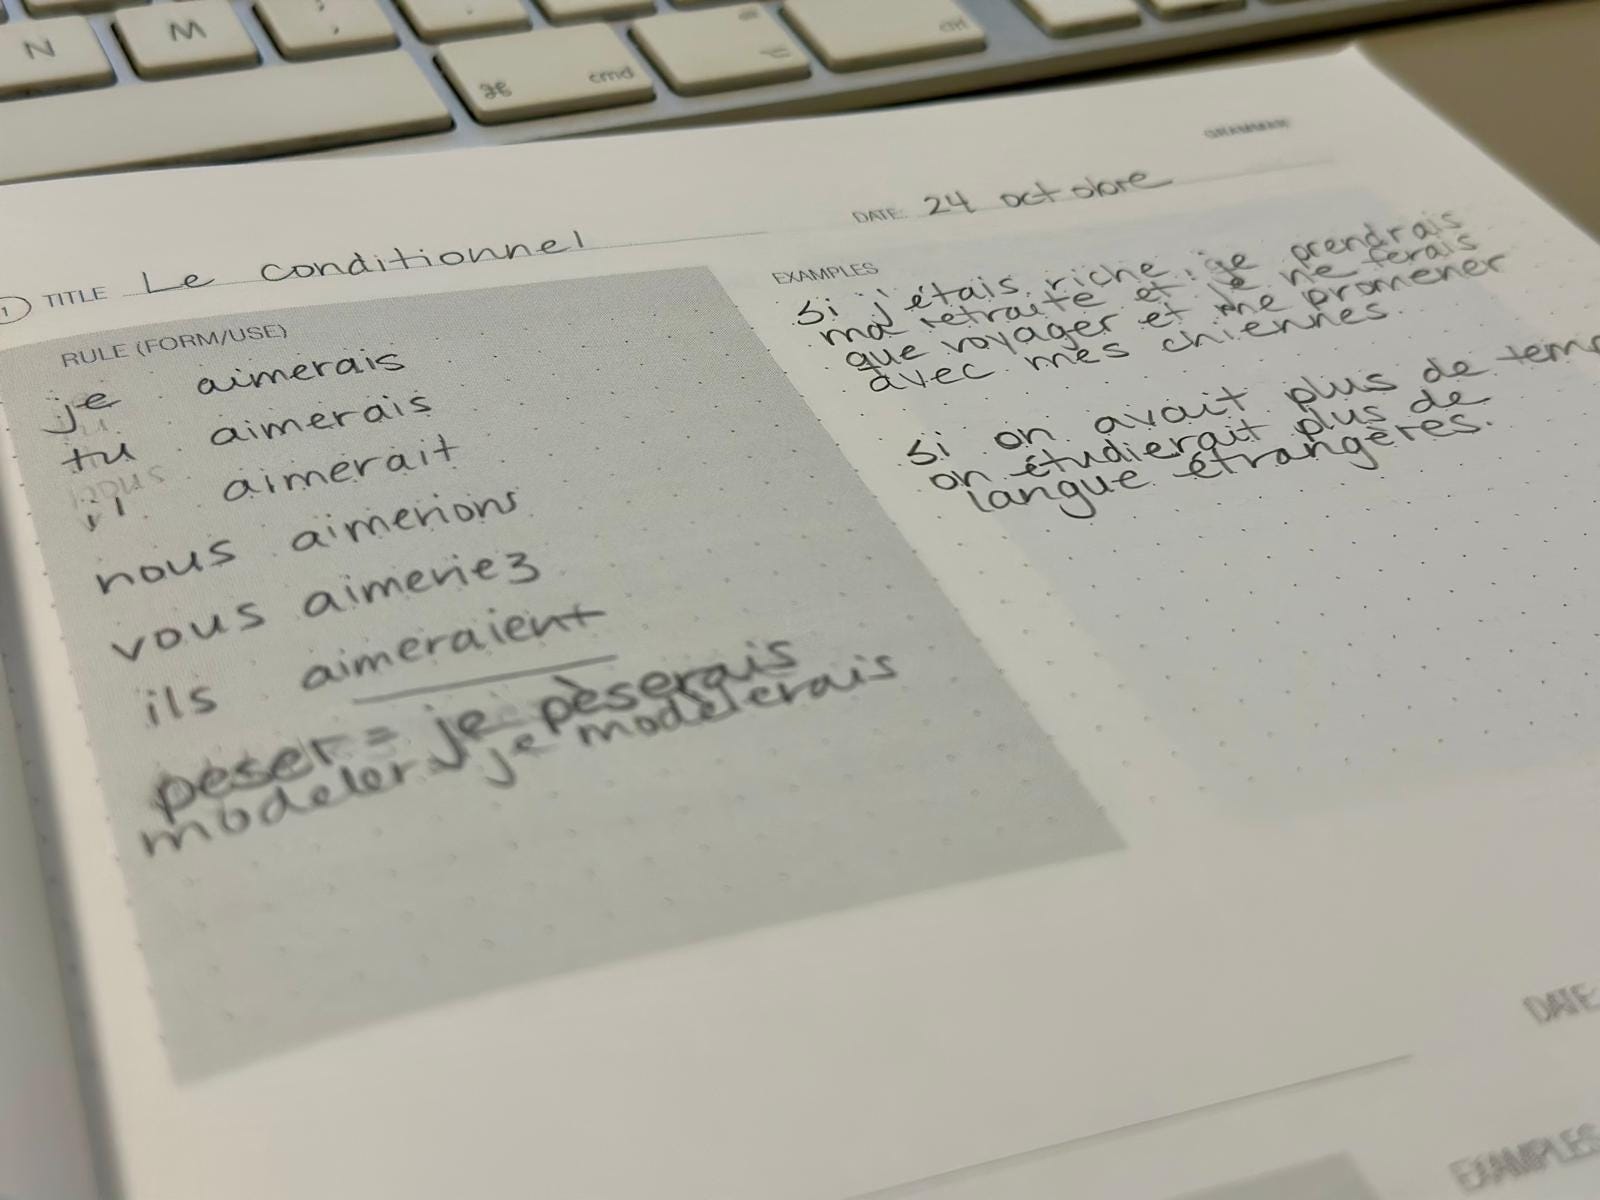 N
M
⌘ cmd
⌥
ctrl
GRAMMAR
1 TITLE Le conditionnel
DATE: 24 octobre
RULE (FORM/USE)
je aimerais
tu aimerais
il aimerait
nous aimerions
vous aimeriez
ils aimeraient
peser = je pèserais
modeler = je modèlerais
EXAMPLES
Si j'étais riche, je prendrais
ma retraite et je ne ferais
que voyager et me promener
avec mes chiennes.
Si on avait plus de temp
on étudierait plus de
langue étrangères.
DATE:
EXAMPLES